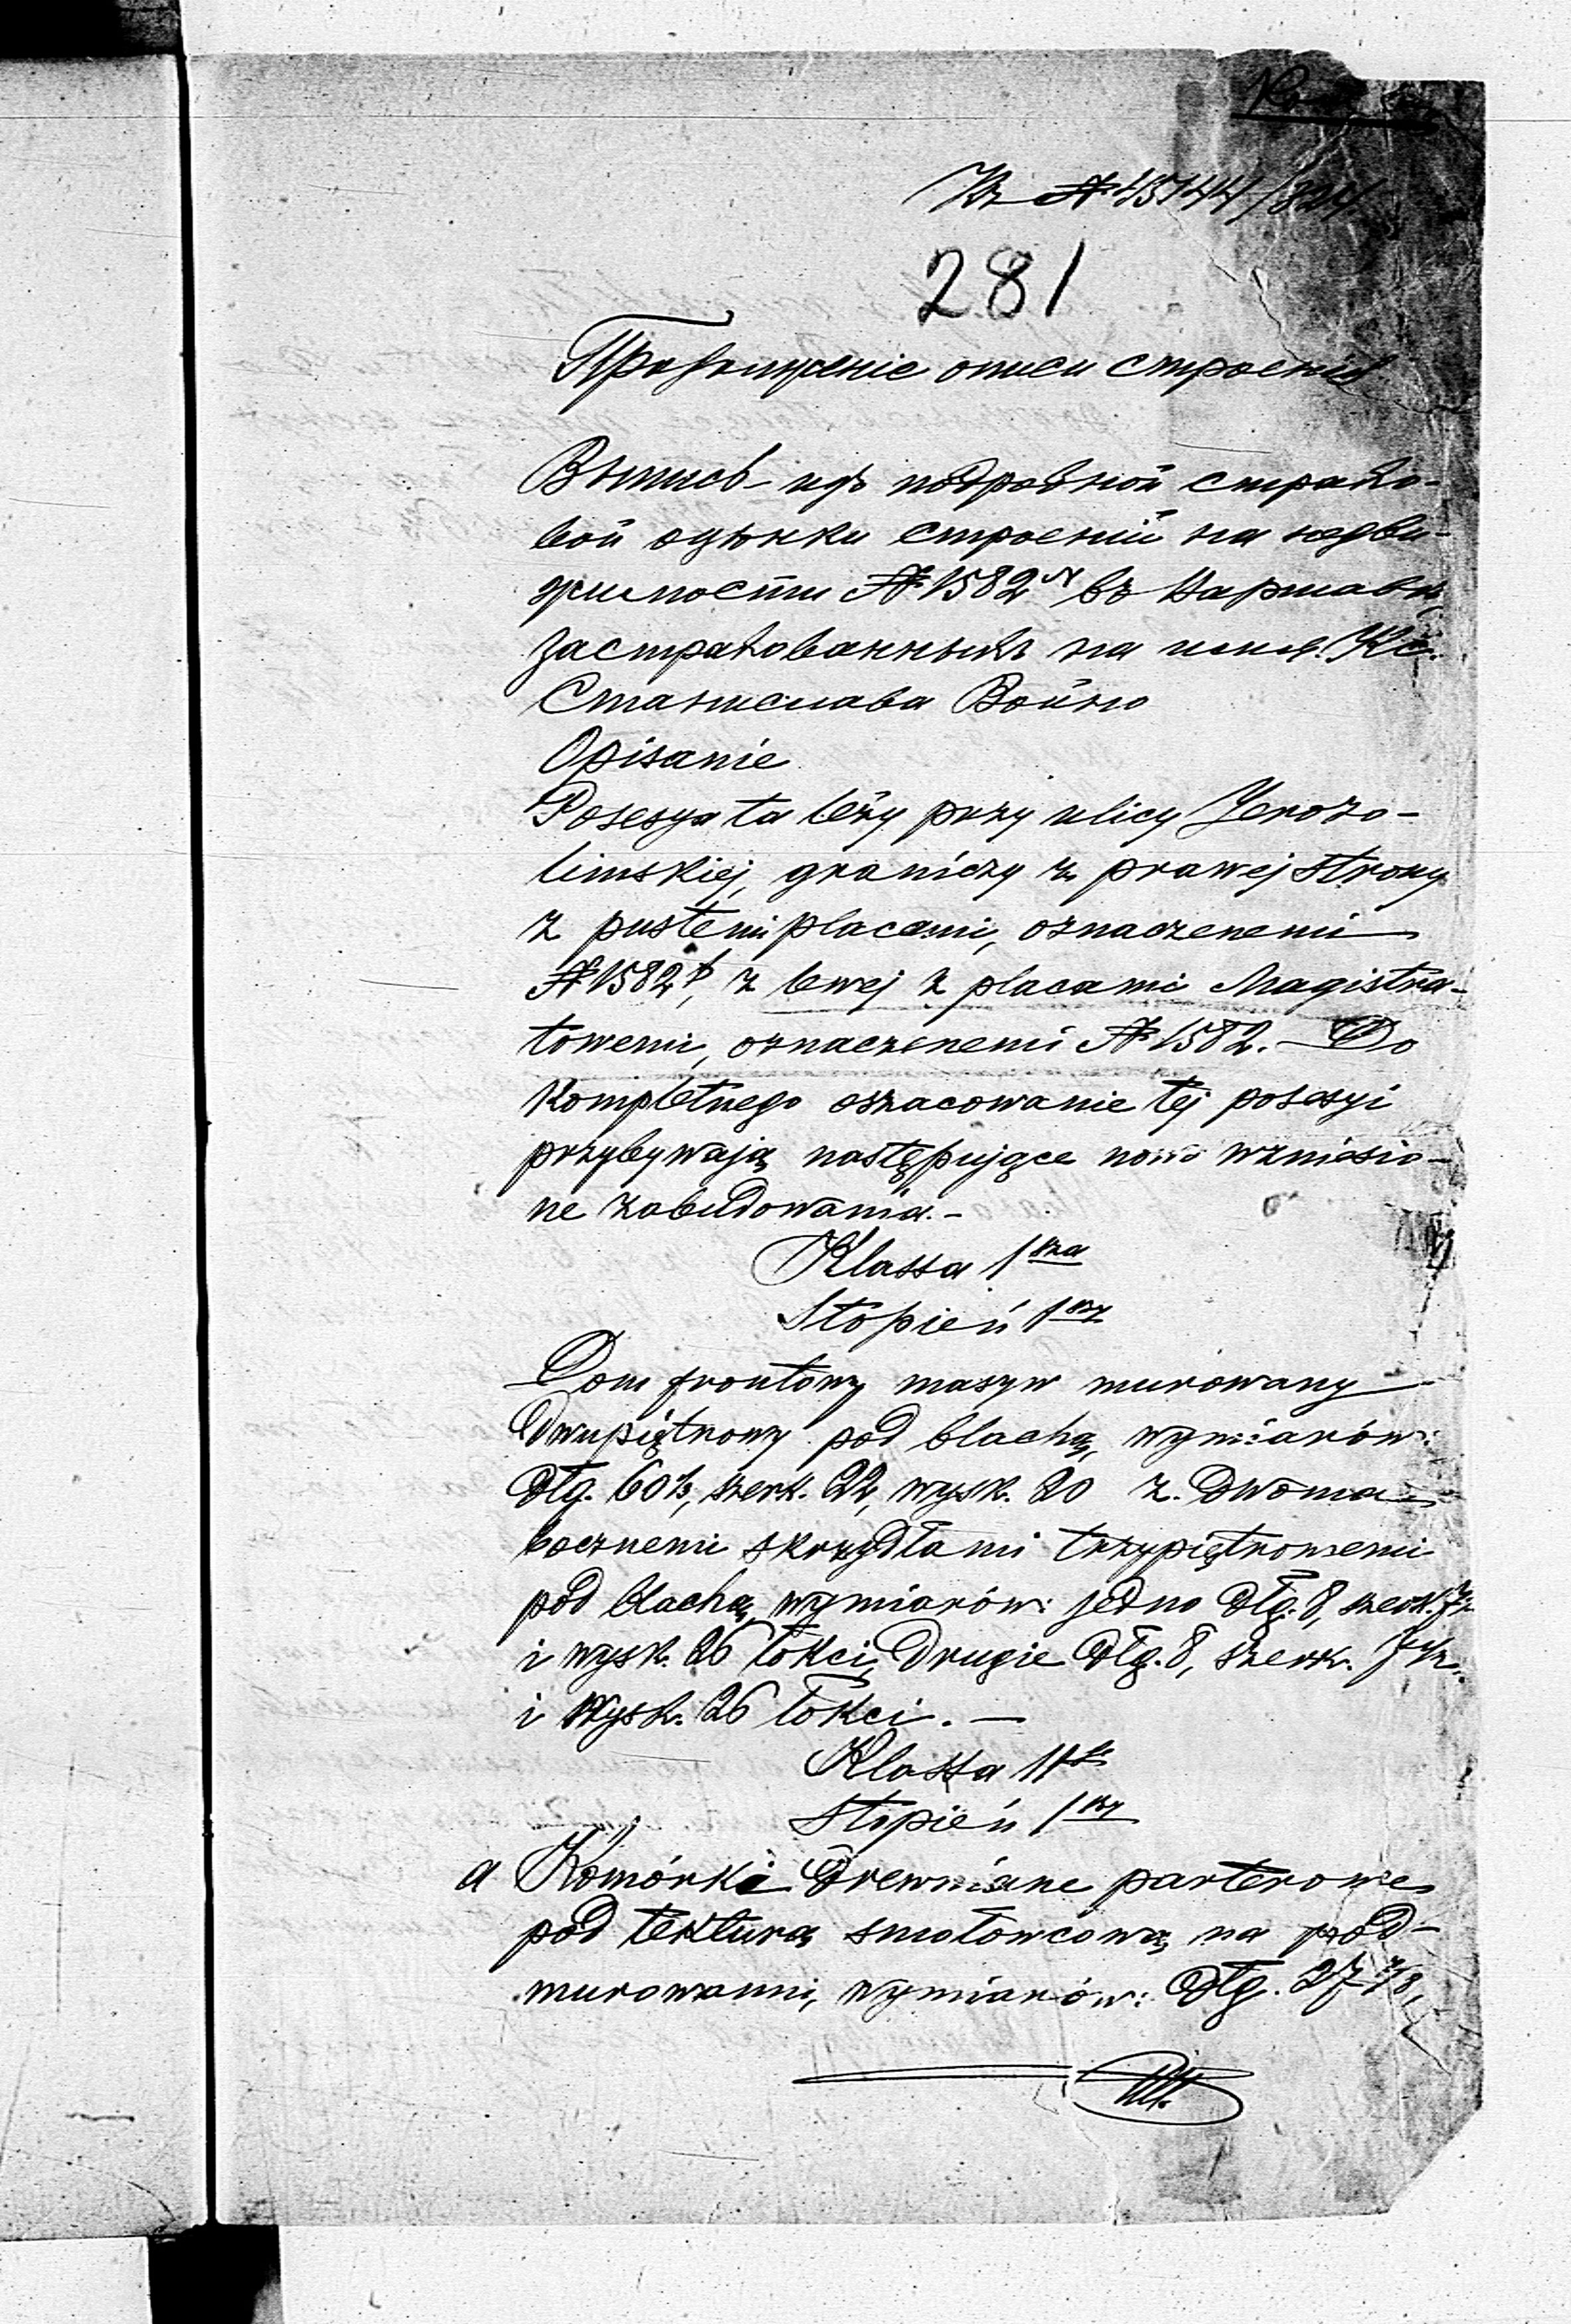 Къ № 45144/324
281
Продолженіе описи строеній
Выпись изъ подробной страхо-
вой оцѣнки строеній на недви-
жимости № 1582 N въ Варшавѣ,
застрахованныхъ на имя
Станислава Войно
Opisanie
Posesya ta leży przy ulicy Jerozo-
limskiej, graniczy z prawej strony
z pustemi placami, oznaczenemi
№ 1582 P, z lewej z placami Magistra-
towemi, oznaczenemi № 1582. – Do
Kompletnego oszacowanie tej posesyi
przybywają następujące nowo wzniesio-
ne zabudowania. –
Klassa 1sza
Stopień 1szy
Dom frontowy masyw murowany
Dwupiętrowy pod blachą, wymiarów:
Dłg. szerk. 22, wysk. 20 z Dwoma
bocznemi skrzydłami trzypiętrowemi
pod blachą, wymiarów: jedno Dłg. 8, szerk.
i wysk. 26 łokci, Drugie Dłg. 8, szerk.
i wysk. 26 łokci. –
Klassa II
Stopień 1szy
a Komórki Drewniane parterowe
pod tekturą smołowcową na pod-
murowaniu, wymiarów: Dłg. 27 7/8,